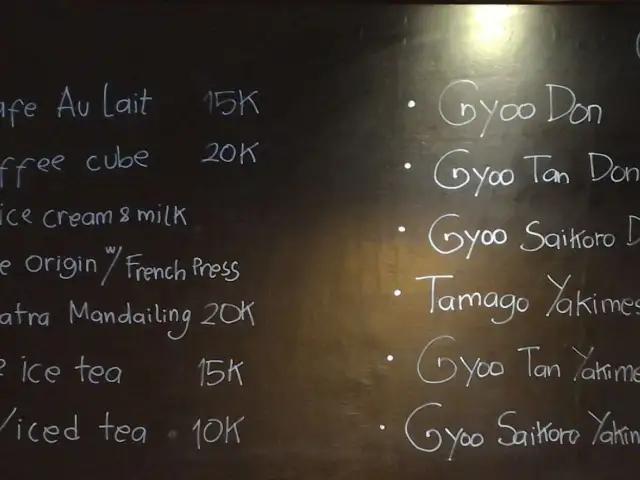 afe Au Lait 15K
ffee cube 20K
ice cream & milk
e origin w/ French Press
atra Mandailing 20K
e ice tea 15K
/iced tea 10K
• Gyoo Don
• Gyoo Tan Don
• Gyoo Saikoro D
• Tamago Yakimes
• Gyoo Tan Yakime
• Gyoo Saikoro Yakim